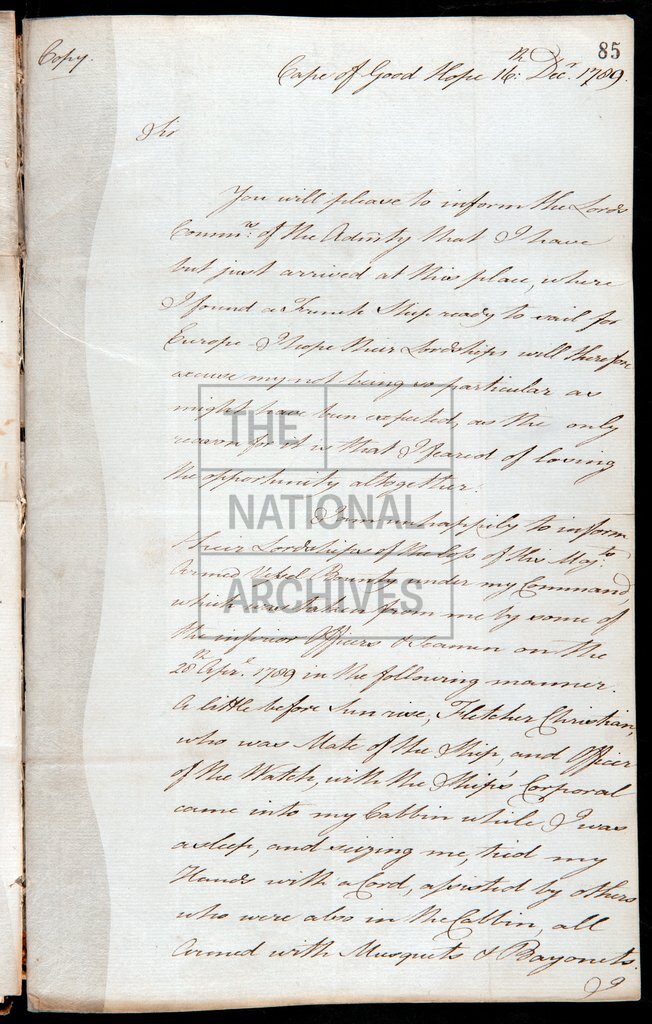 Copy.
85
Cape of Good Hope 16:th Decr. 1789.
Sir
You will please to inform the Lords
Commrs. of the Admty that I have
but just arrived at this place, where
I found a French Ship ready to sail for
Europe I hope their Lordships will therefore
excuse my not being so particular as
might have been expected, as the only
reason for it is that I feared of loosing
the opportunity altogether.
I am unhappily to inform
their Lordships of the loss of His Maj:ts
Armed Vessel Bounty under my Command
which was taken from me by some of
the inferior Officers & Seamen on the
28th Apr. 1789 in the following manner.
A little before Sun rise, Fletcher Christian,
who was Mate of the Ship, and Officer
of the Watch, with the Ship's Corporal
came into my Cabbin while I was
asleep, and seizing me, tied my
Hands with a Cord, assisted by others
who were also in the Cabbin, all
armed with Musquets & Bayonets.
THE
NATIONAL
ARCHIVES